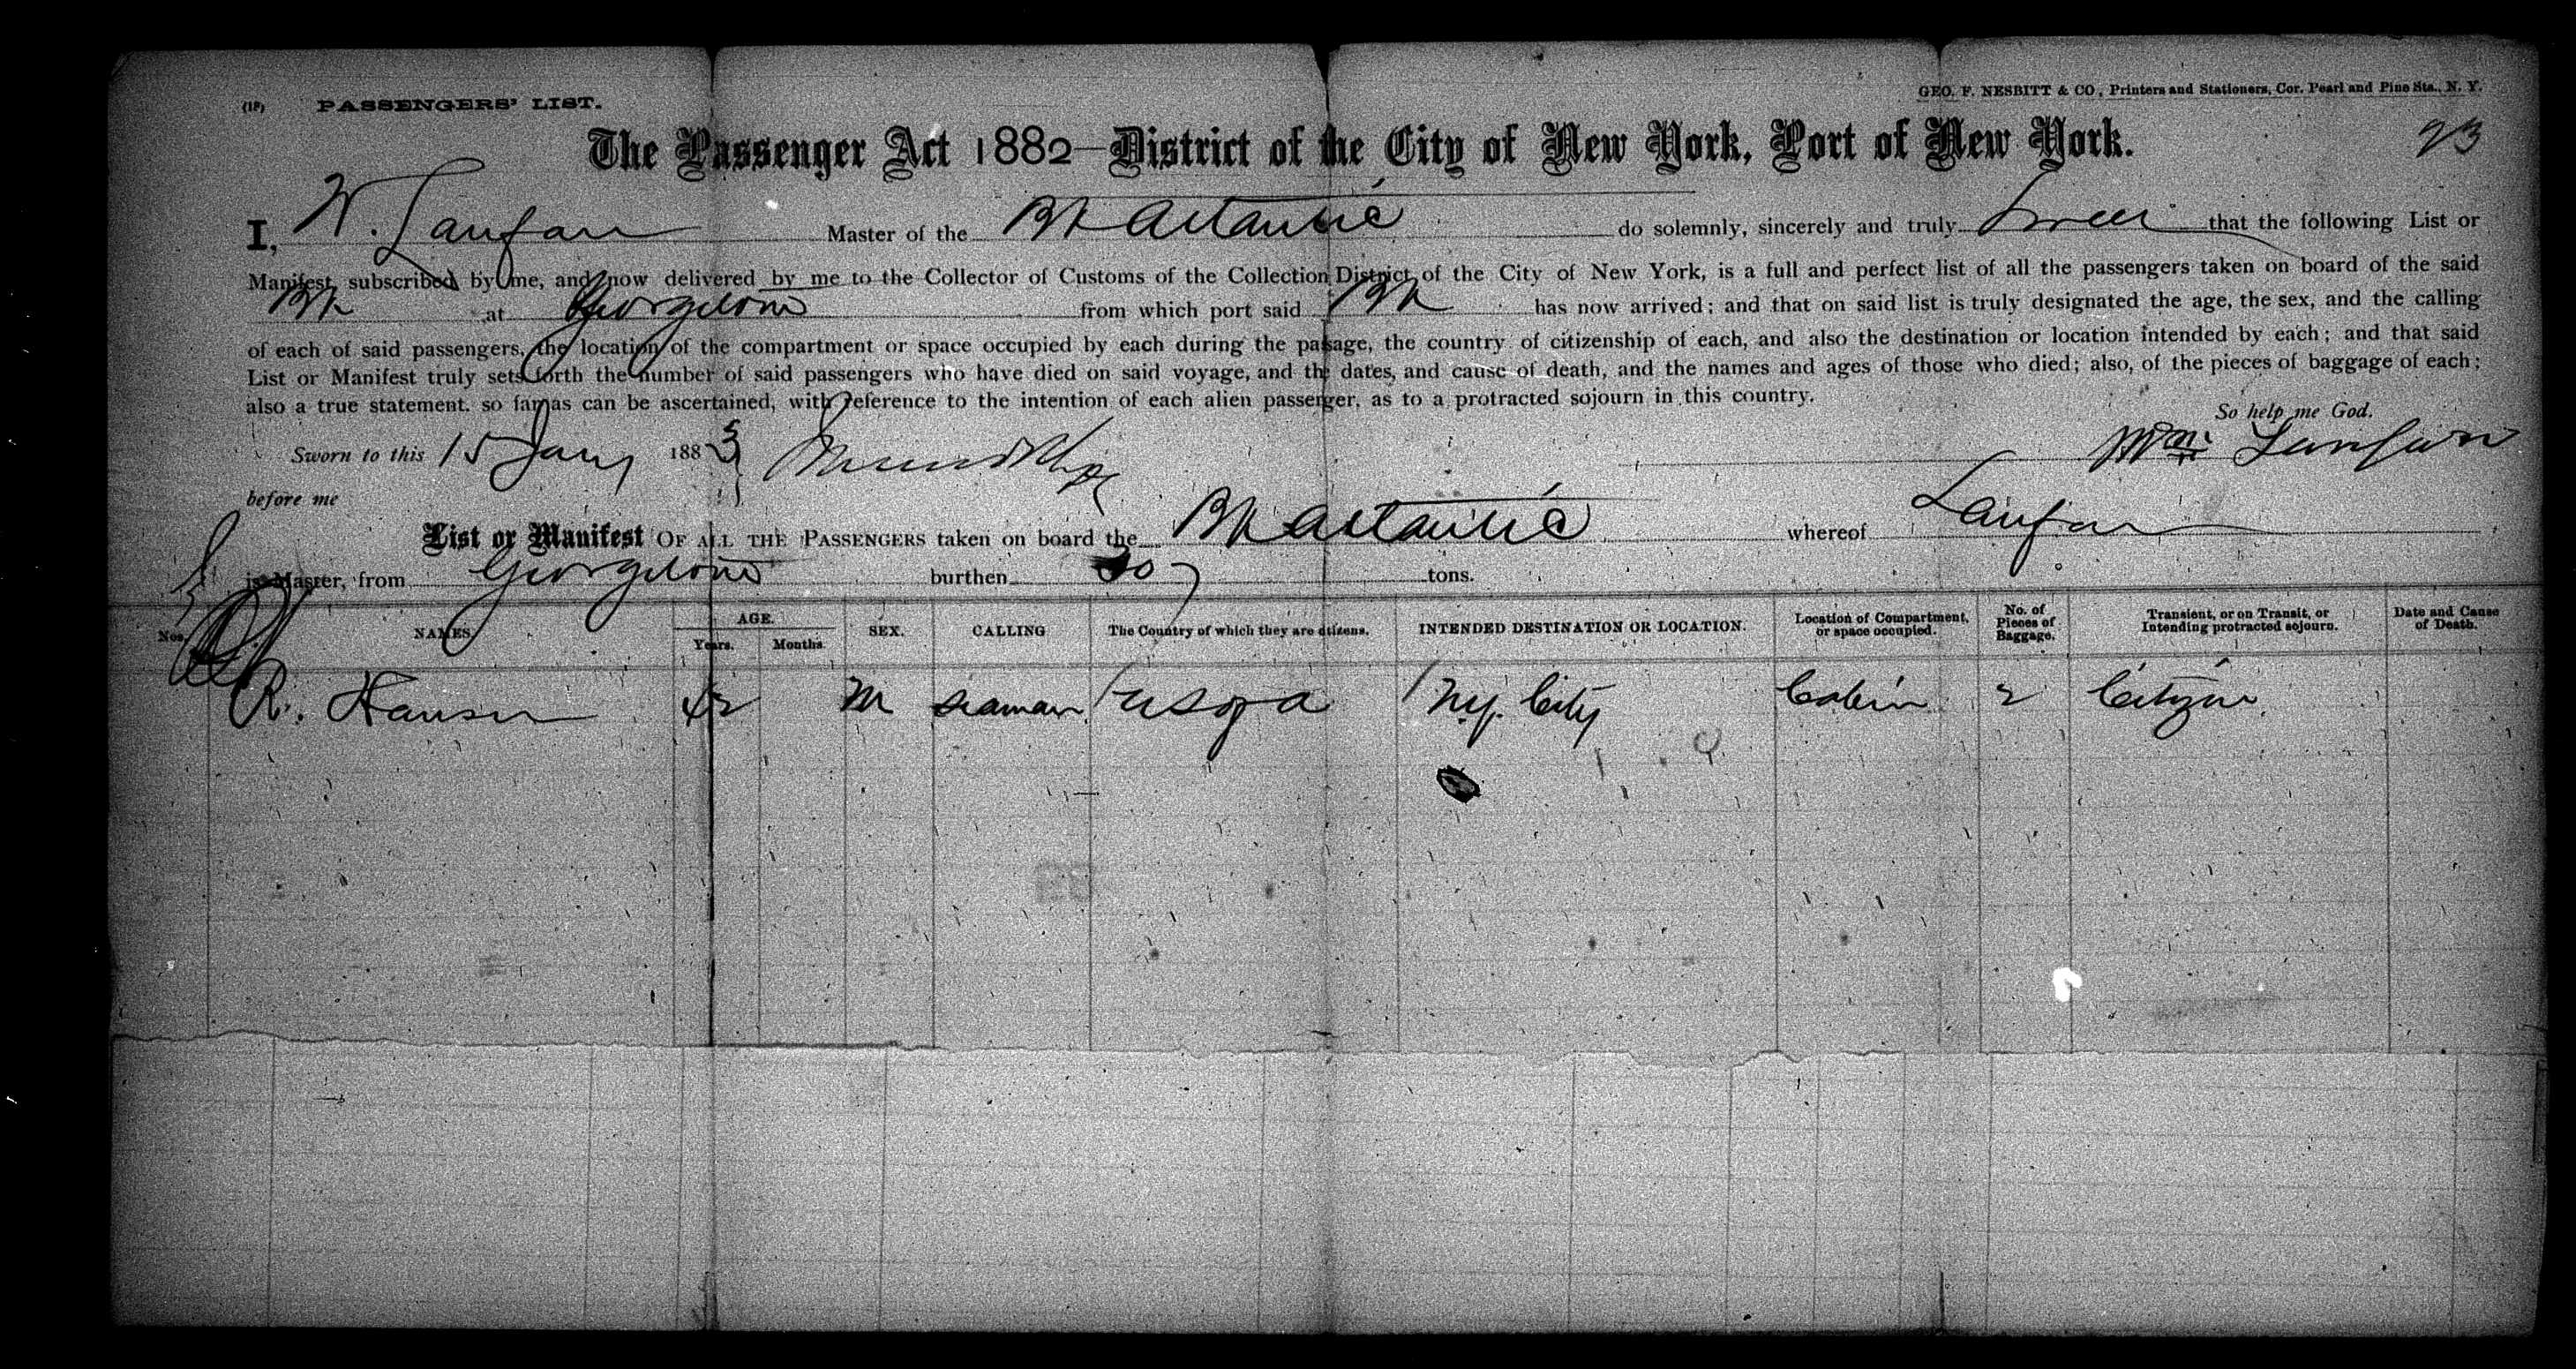 (18) PASSENGERS' LIST. GEO. F. NESBITT & CO., Printers and Stationers, Cor. Pearl and Pine Sts., N. Y.
The Passenger Act 1882—District of the City of New York, Port of New York. 23
I, W. Lanfare Master of the Bk Atlantic do solemnly, sincerely and truly Swear that the following List or
Manifest, subscribed by me, and now delivered by me to the Collector of Customs of the Collection District of the City of New York, is a full and perfect list of all the passengers taken on board of the said
Bk at Georgetown from which port said Bk has now arrived; and that on said list is truly designated the age, the sex, and the calling
of each of said passengers, the location of the compartment or space occupied by each during the passage, the country of citizenship of each, and also the destination or location intended by each; and that said
List or Manifest truly sets forth the number of said passengers who have died on said voyage, and the dates, and cause of death, and the names and ages of those who died; also, of the pieces of baggage of each;
also a true statement, so far as can be ascertained, with reference to the intention of each alien passenger, as to a protracted sojourn in this country.
So help me God.
Sworn to this 15 Jany 1883 Wm
before me
List or Manifest OF ALL THE PASSENGERS taken on board the Bk Atlantic whereof
is Master, from Georgetown burthen tons.
Nos. NAMES. AGE. Years. Months. SEX. CALLING The Country of which they are citizens. INTENDED DESTINATION OR LOCATION. Location of Compartment, or space occupied. No. of Pieces of Baggage. Transient, or on Transit, or Intending protracted sojourn. Date and Cause of Death.
R. Hansen 42 M seaman U S of A N.Y. City Cabin 2 Citizen